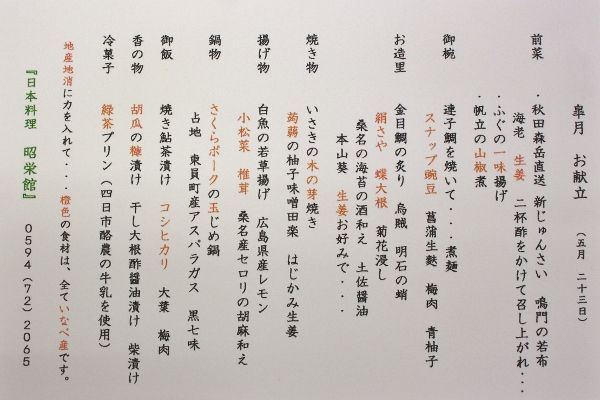 皐月　お献立　（五月　二十三日）
前菜　・秋田森岳直送　新じゅんさい　鳴門の若布
海老　生姜　二杯酢をかけて召し上がれ・・・
・ふぐの一味揚げ
・帆立の山椒煮
御椀　連子鯛を焼いて・・・煮麺
スナップ豌豆　菖蒲生麩　梅肉　青柚子
お造里　金目鯛の炙り　烏賊　明石の蛸
絹さや　蝶大根　菊花浸し
桑名の海苔の酒和え　土佐醤油
本山葵　生姜お好みで・・・
焼き物　いさきの木の芽焼き
蒟蒻の柚子味噌田楽　はじかみ生姜
揚げ物　白魚の若草揚げ　広島県産レモン
小松菜　椎茸　桑名産セロリの胡麻和え
鍋物　さくらポークの玉じめ鍋
占地　東員町産アスパラガス　黒七味
御飯　焼き鮎茶漬け　コシヒカリ　大葉　梅肉
香の物　胡瓜の糠漬け　干し大根酢醤油漬け　柴漬け
冷菓子　緑茶プリン（四日市酪農の牛乳を使用）
地産地消に力を入れて・・・橙色の食材は、全ていなべ産です。
『日本料理　昭栄館』　0594（72）2065